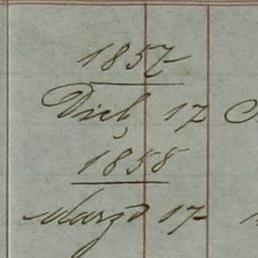 1857
Dicb 17
1858
Marzo 17